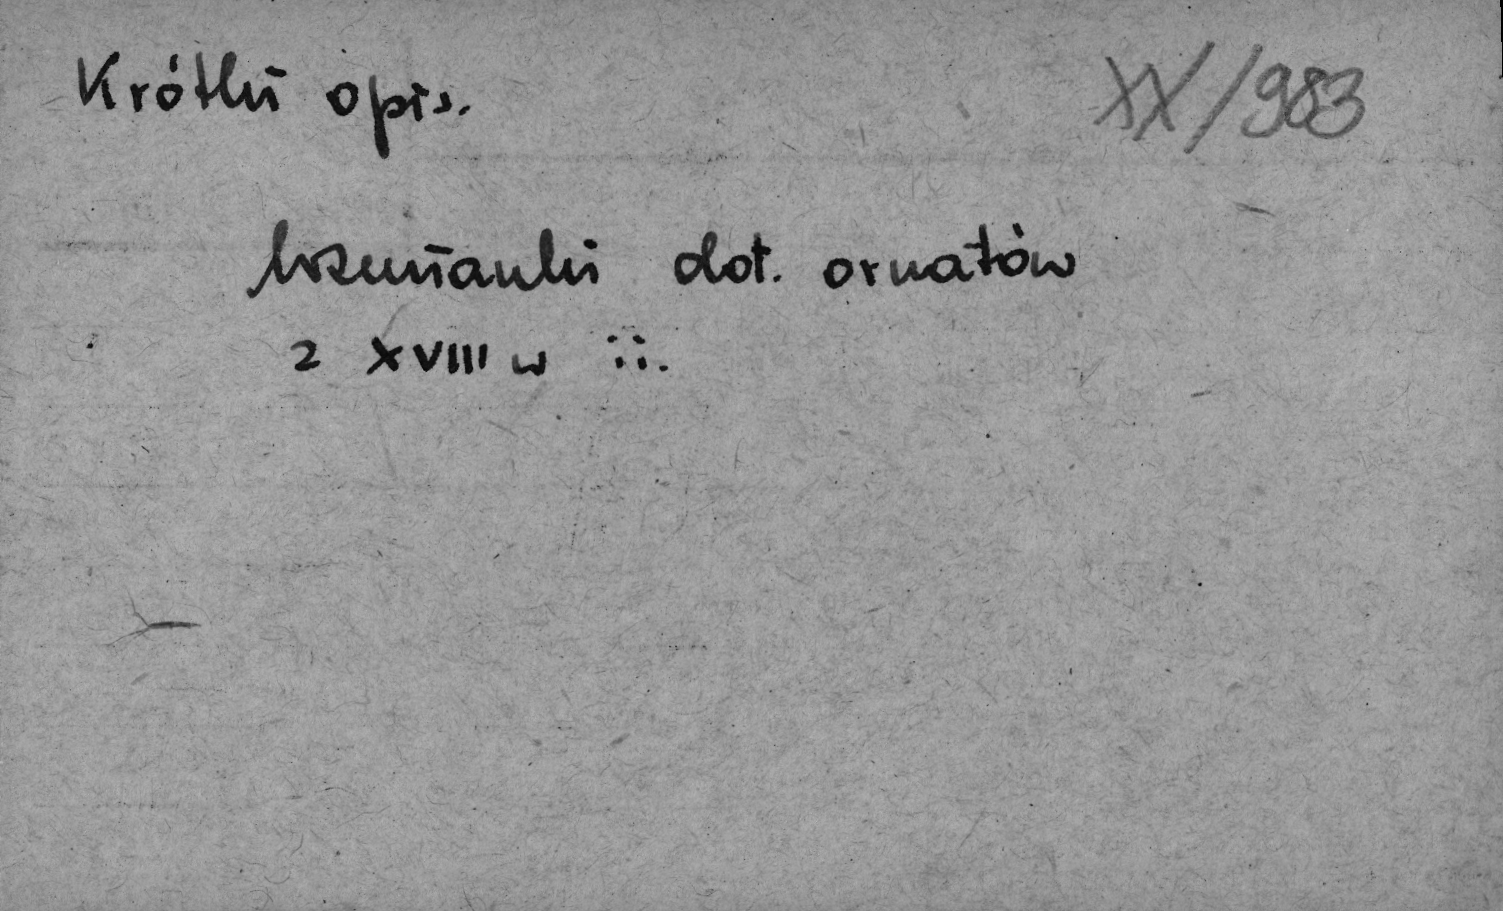 Krótki opis. XX/983
Wzmianki dot. ornatów
z XVIII w i i.